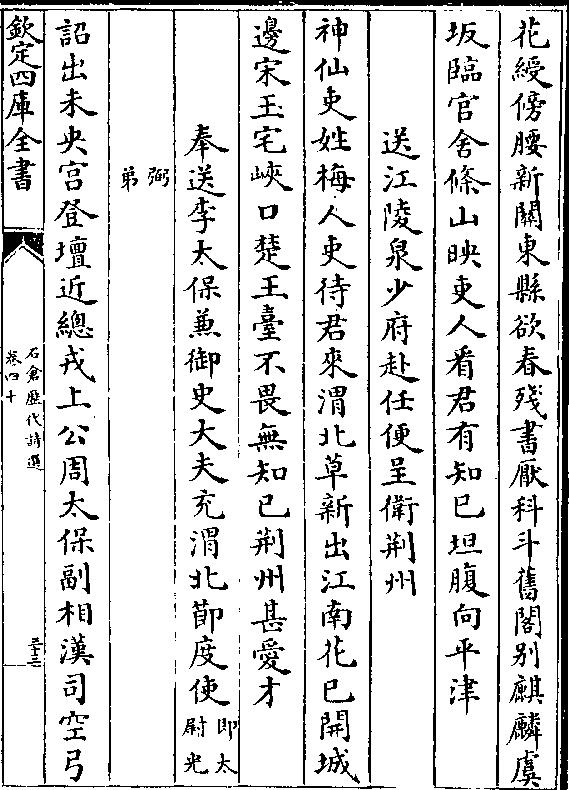 花綬傍腰新關東縣欲春殘書厭科斗舊閣别麒麟虞
坂臨官舍條山映吏人看君有知已坦腹向平津
送江陵泉少府赴任便呈衛荆州
神仙吏姓梅人吏待君來渭北草新出江南花已開城
邊宋玉宅峽口楚王臺不畏無知已荆州甚愛才
奉送李太保兼御史大夫充渭北節度使即太尉光
弼弟
詔出未央宫登壇近總戎上公周太保副相漢司空弓
欽定四庫全書
石倉歷代詩選
卷四十
三十三